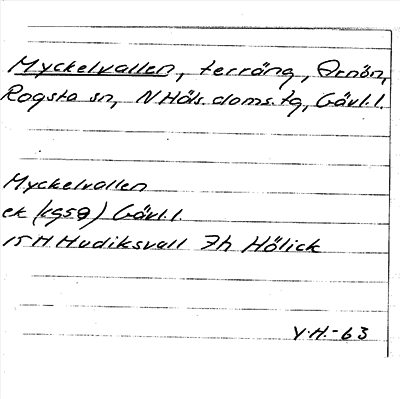 Myckelvallen, terräng, Arnön,
Rogsta sn, N Häls. doms. tg, Gävl. l.
Myckelvallen
ek (1959) Gävl. l
15 H Hudiksvall 7h Hölick
Y. H. - 63